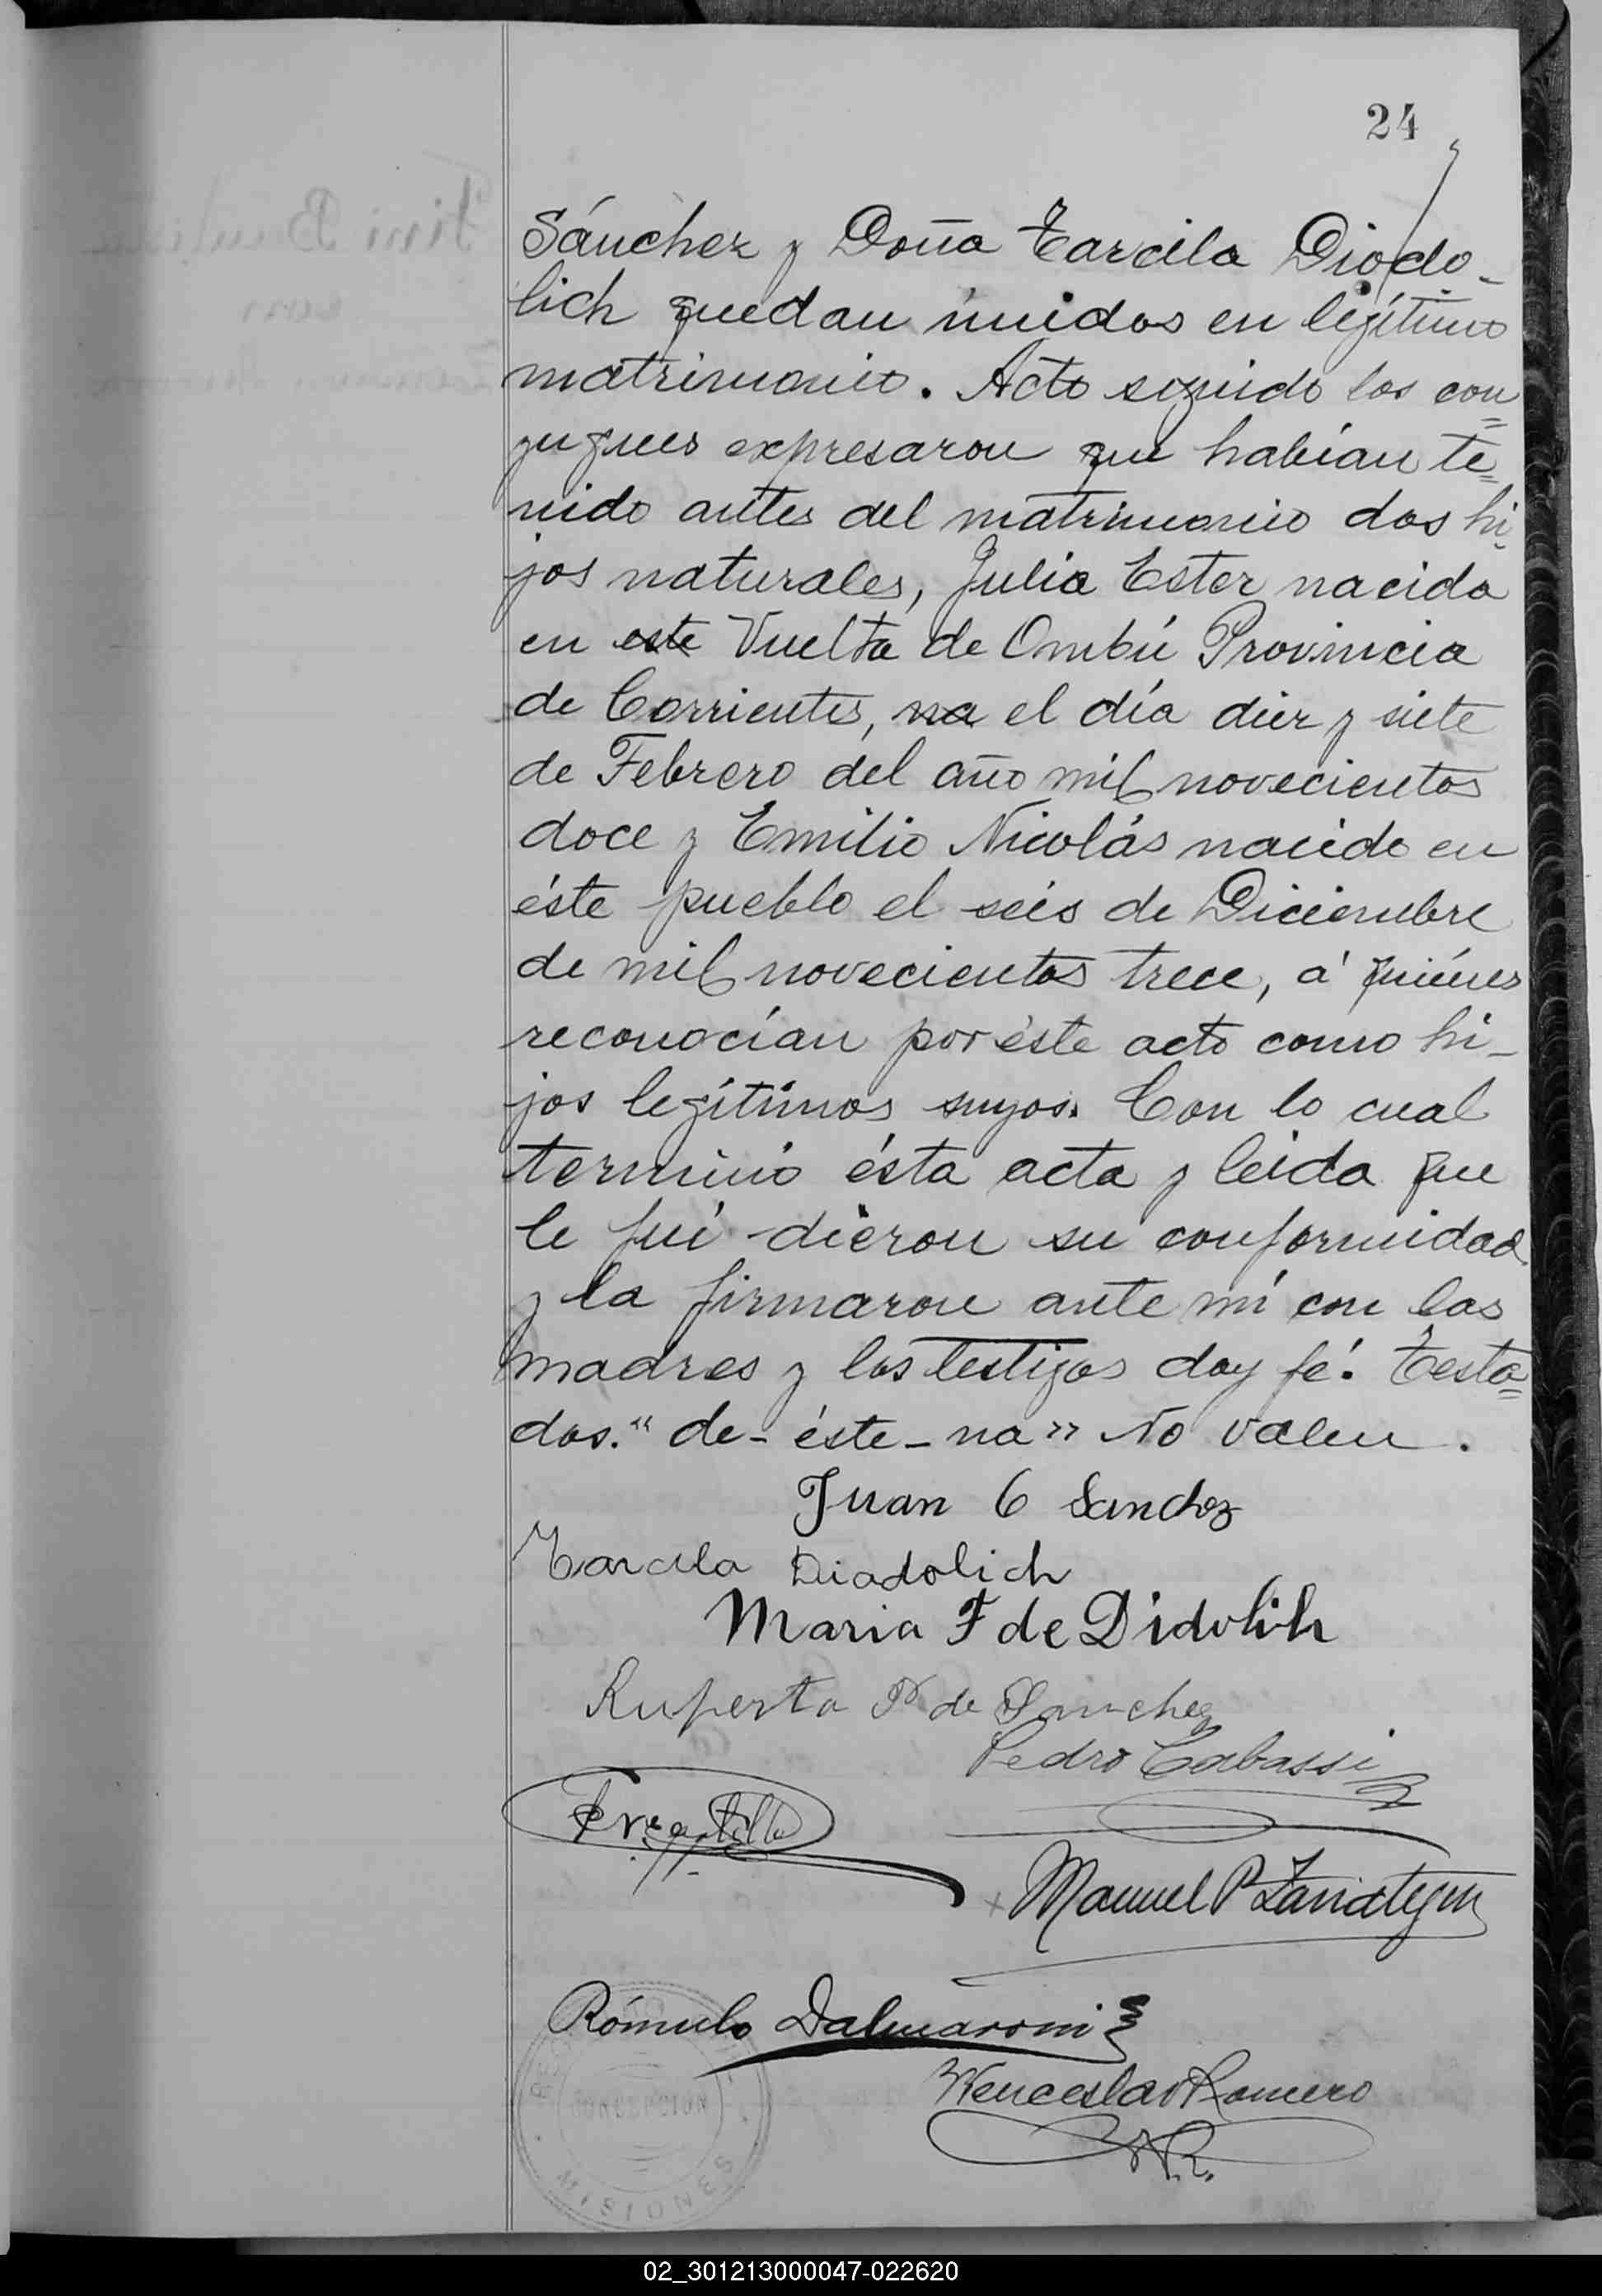 24
Sánchez y Doña Tarcila Diodo-
lich quedan únidos en legítimo
matrimonio. Acto seguido los con=
yugues expresaron que habían te=
nido antes del matrimonio dos hi-
jos naturales, Julia Ester nacida
en este Vuelta de Ombú Provincia
de Corrientes, na el día diez y siete
de Febrero del año mil novecientos
doce y Emilio Nicolás nacido en
éste pueblo el seis de Diciembre
de mil novecientos trece, á quiénes
reconocían por éste acto como hi-
jos legítimos suyos. Con lo cual
terminó ésta acta y leida que
le fué dieron su conformidad
y la firmaron ante mí con las
madres y los testigos doy fé. Testa=
dos. "de-éste-na" No valen.
Juan C Sanchez
Tarcila Diadolich
Maria F de Didolih
Ruperta N de Sanchez
Pedro Cabassi
Manuel P Zariategui
Rómulo Dalmaroni
Wenceslao Romero
W.R.
CONCEPCION
MISIONES
02_301213000047-022620